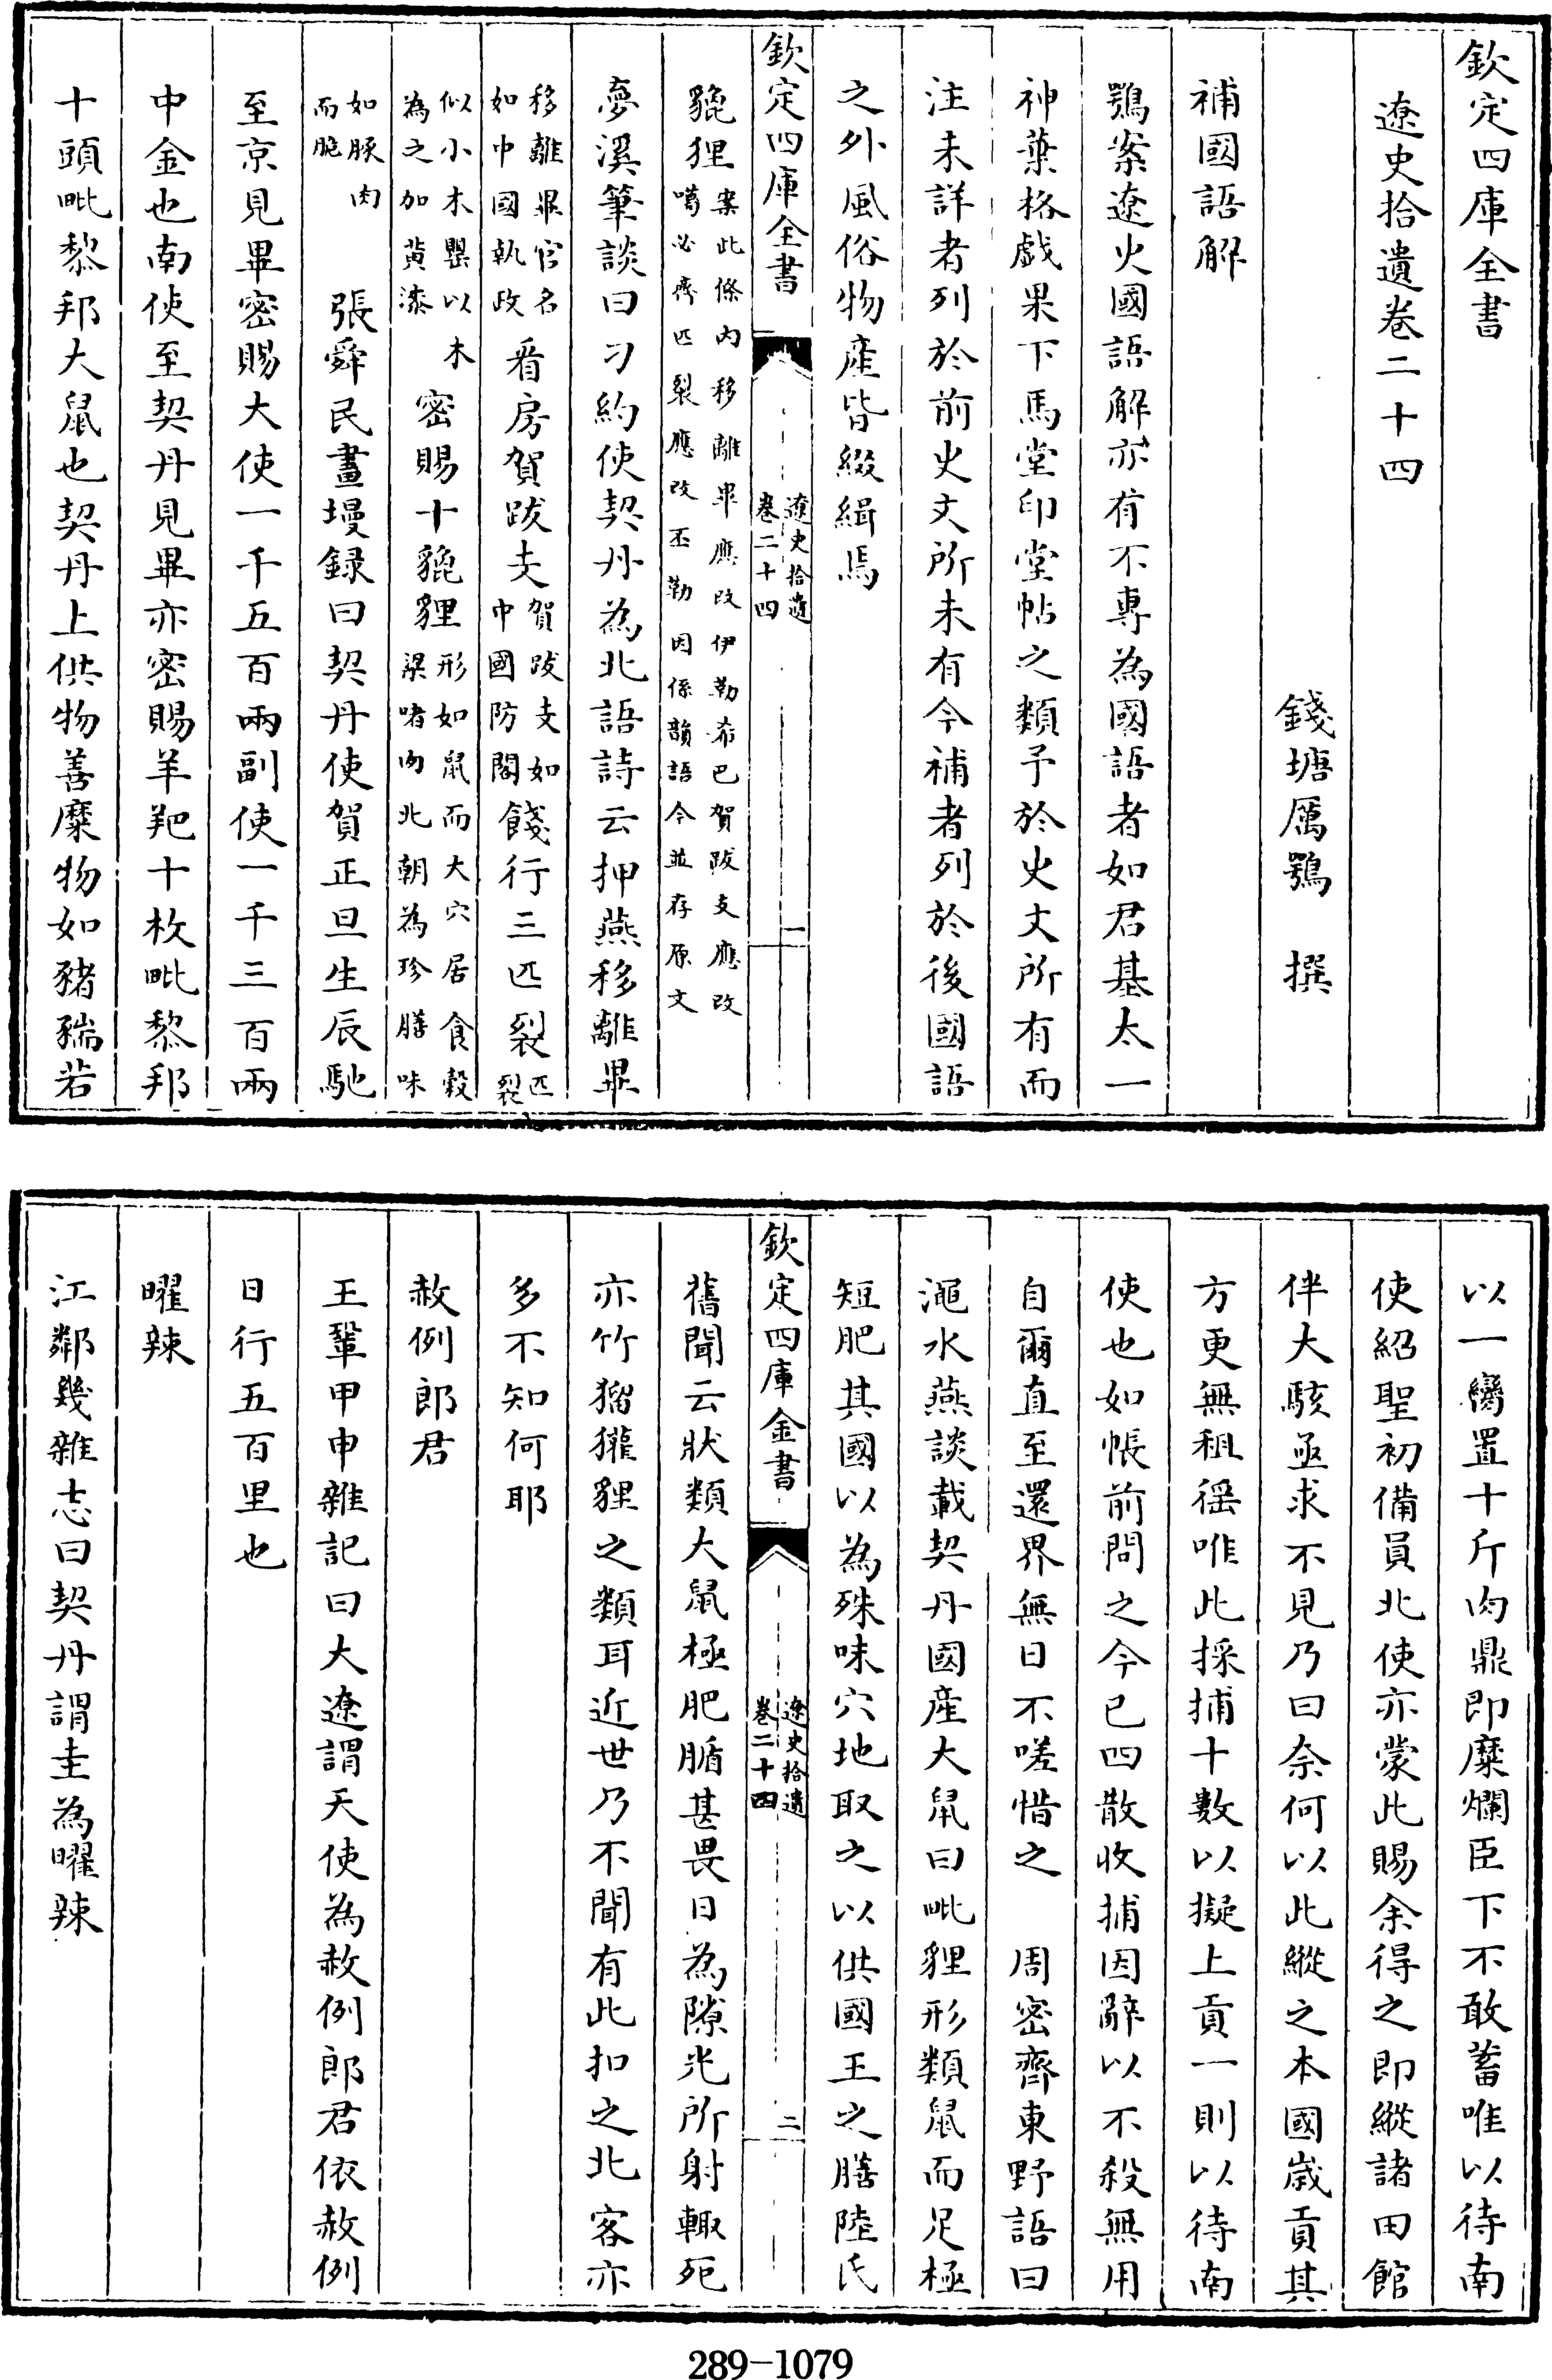 欽定四庫全書
遼史拾遺卷二十四
錢塘厲鶚 撰
補國語解
鶚案遼史國語解亦有不專為國語者如君基太一
神葉格戲果下馬堂印堂帖之類予於史文所有而
注未詳者列於前史文所未有今補者列於後國語
之外風俗物產皆綴緝焉
欽定四庫全書
遼史拾遺
卷二十四
一
貔狸
案此條內移離畢應改伊勒希巴賀跋支應改
噶必齊匹裂應改丕勒因係韻語今並存原文
夢溪筆談曰刁約使契丹為北語詩云押燕移離畢
移離畢官名
如中國執政
看房賀跋支
賀跋支如
中國防閤
餞行三匹裂
匹裂
似小木罌以木
為之加黃漆
密賜十貔貍
形如鼠而大穴居食穀
粱嗜肉北朝為珍膳味
如豚肉
而脆
張舜民畫墁録曰契丹使賀正旦生辰馳
至京見畢密賜大使一千五百兩副使一千三百兩
中金也南使至契丹見畢亦密賜羊羓十枚毗黎邦
十頭毗黎邦大鼠也契丹上供物善糜物如豬猯若
以一臠置十斤肉鼎即糜爛臣下不敢蓄唯以待南
使紹聖初備員北使亦蒙此賜余得之即縱諸田館
伴大駭亟求不見乃曰奈何以此縱之本國歲貢其
方更無租徭唯此採捕十數以擬上貢一則以待南
使也如帳前問之今已四散收捕因辭以不殺無用
自爾直至還界無日不嗟惜之 周密齊東野語曰
澠水燕談載契丹國產大鼠曰毗貍形類鼠而足極
短肥其國以為殊味穴地取之以供國王之膳陸氏
欽定四庫全書
遼史拾遺
卷二十四
二
舊聞云狀類大鼠極肥腯甚畏日為隙光所射輒死
亦竹㺠獾貍之類耳近世乃不聞有此扣之北客亦
多不知何耶
赦例郎君
王鞏甲申雜記曰大遼謂天使為赦例郎君依赦例
日行五百里也
曜辣
江鄰幾雜志曰契丹謂圭為曜辣
289-1079